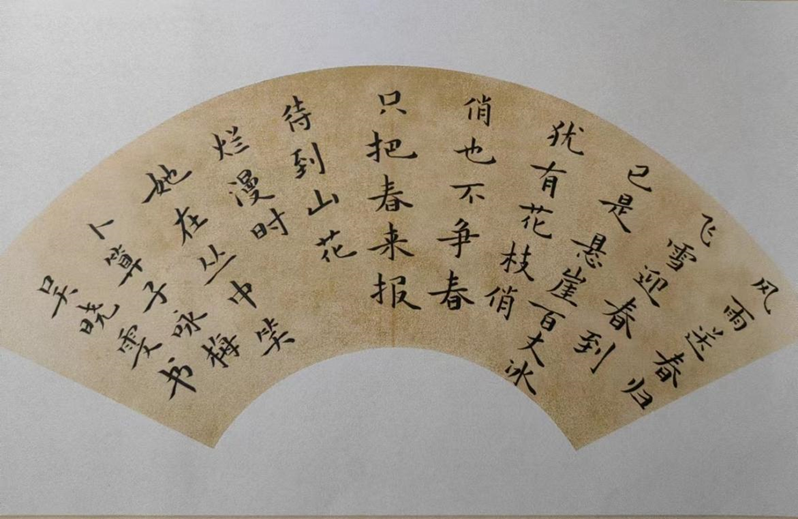 风雨送春归
飞雪迎春到
已是悬崖百丈冰
犹有花枝俏
俏也不争春
只把春来报
待到山花
烂漫时
她在丛中笑
卜算子咏梅
吴晓雯书